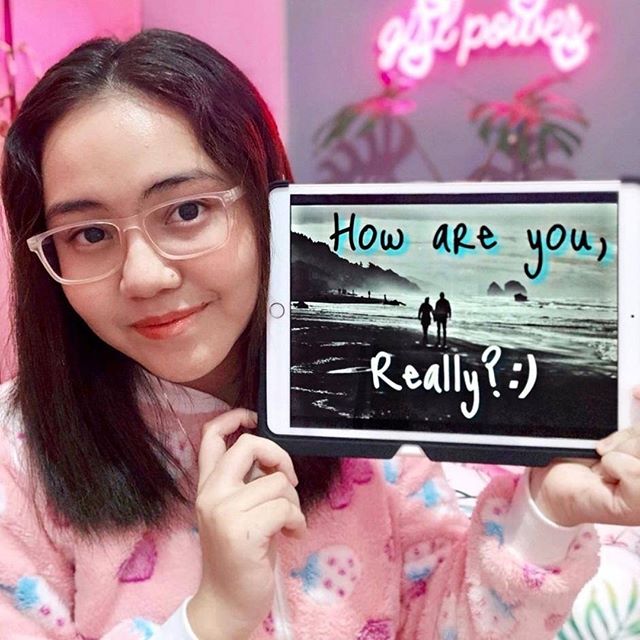 girl power
How are you,
Really? :)